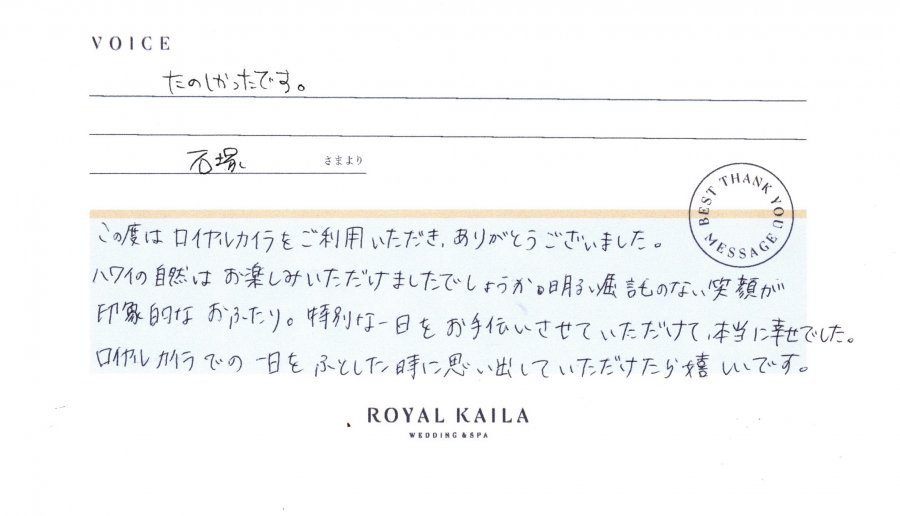 VOICE
たのしかったです。
石塚
さまより
BEST THANK YOU MESSAGE
この度はロイヤルカイラをご利用いただき、ありがとうございました。
ハワイの自然はお楽しみいただけましたでしょうか。明るい屈託のない笑顔が
印象的なおふたり。特別な一日をお手伝いさせていただけて、本当に幸せでした。
ロイヤルカイラでの一日をふとした時に思い出していただけたら嬉しいです。
ROYAL KAILA
WEDDING & SPA